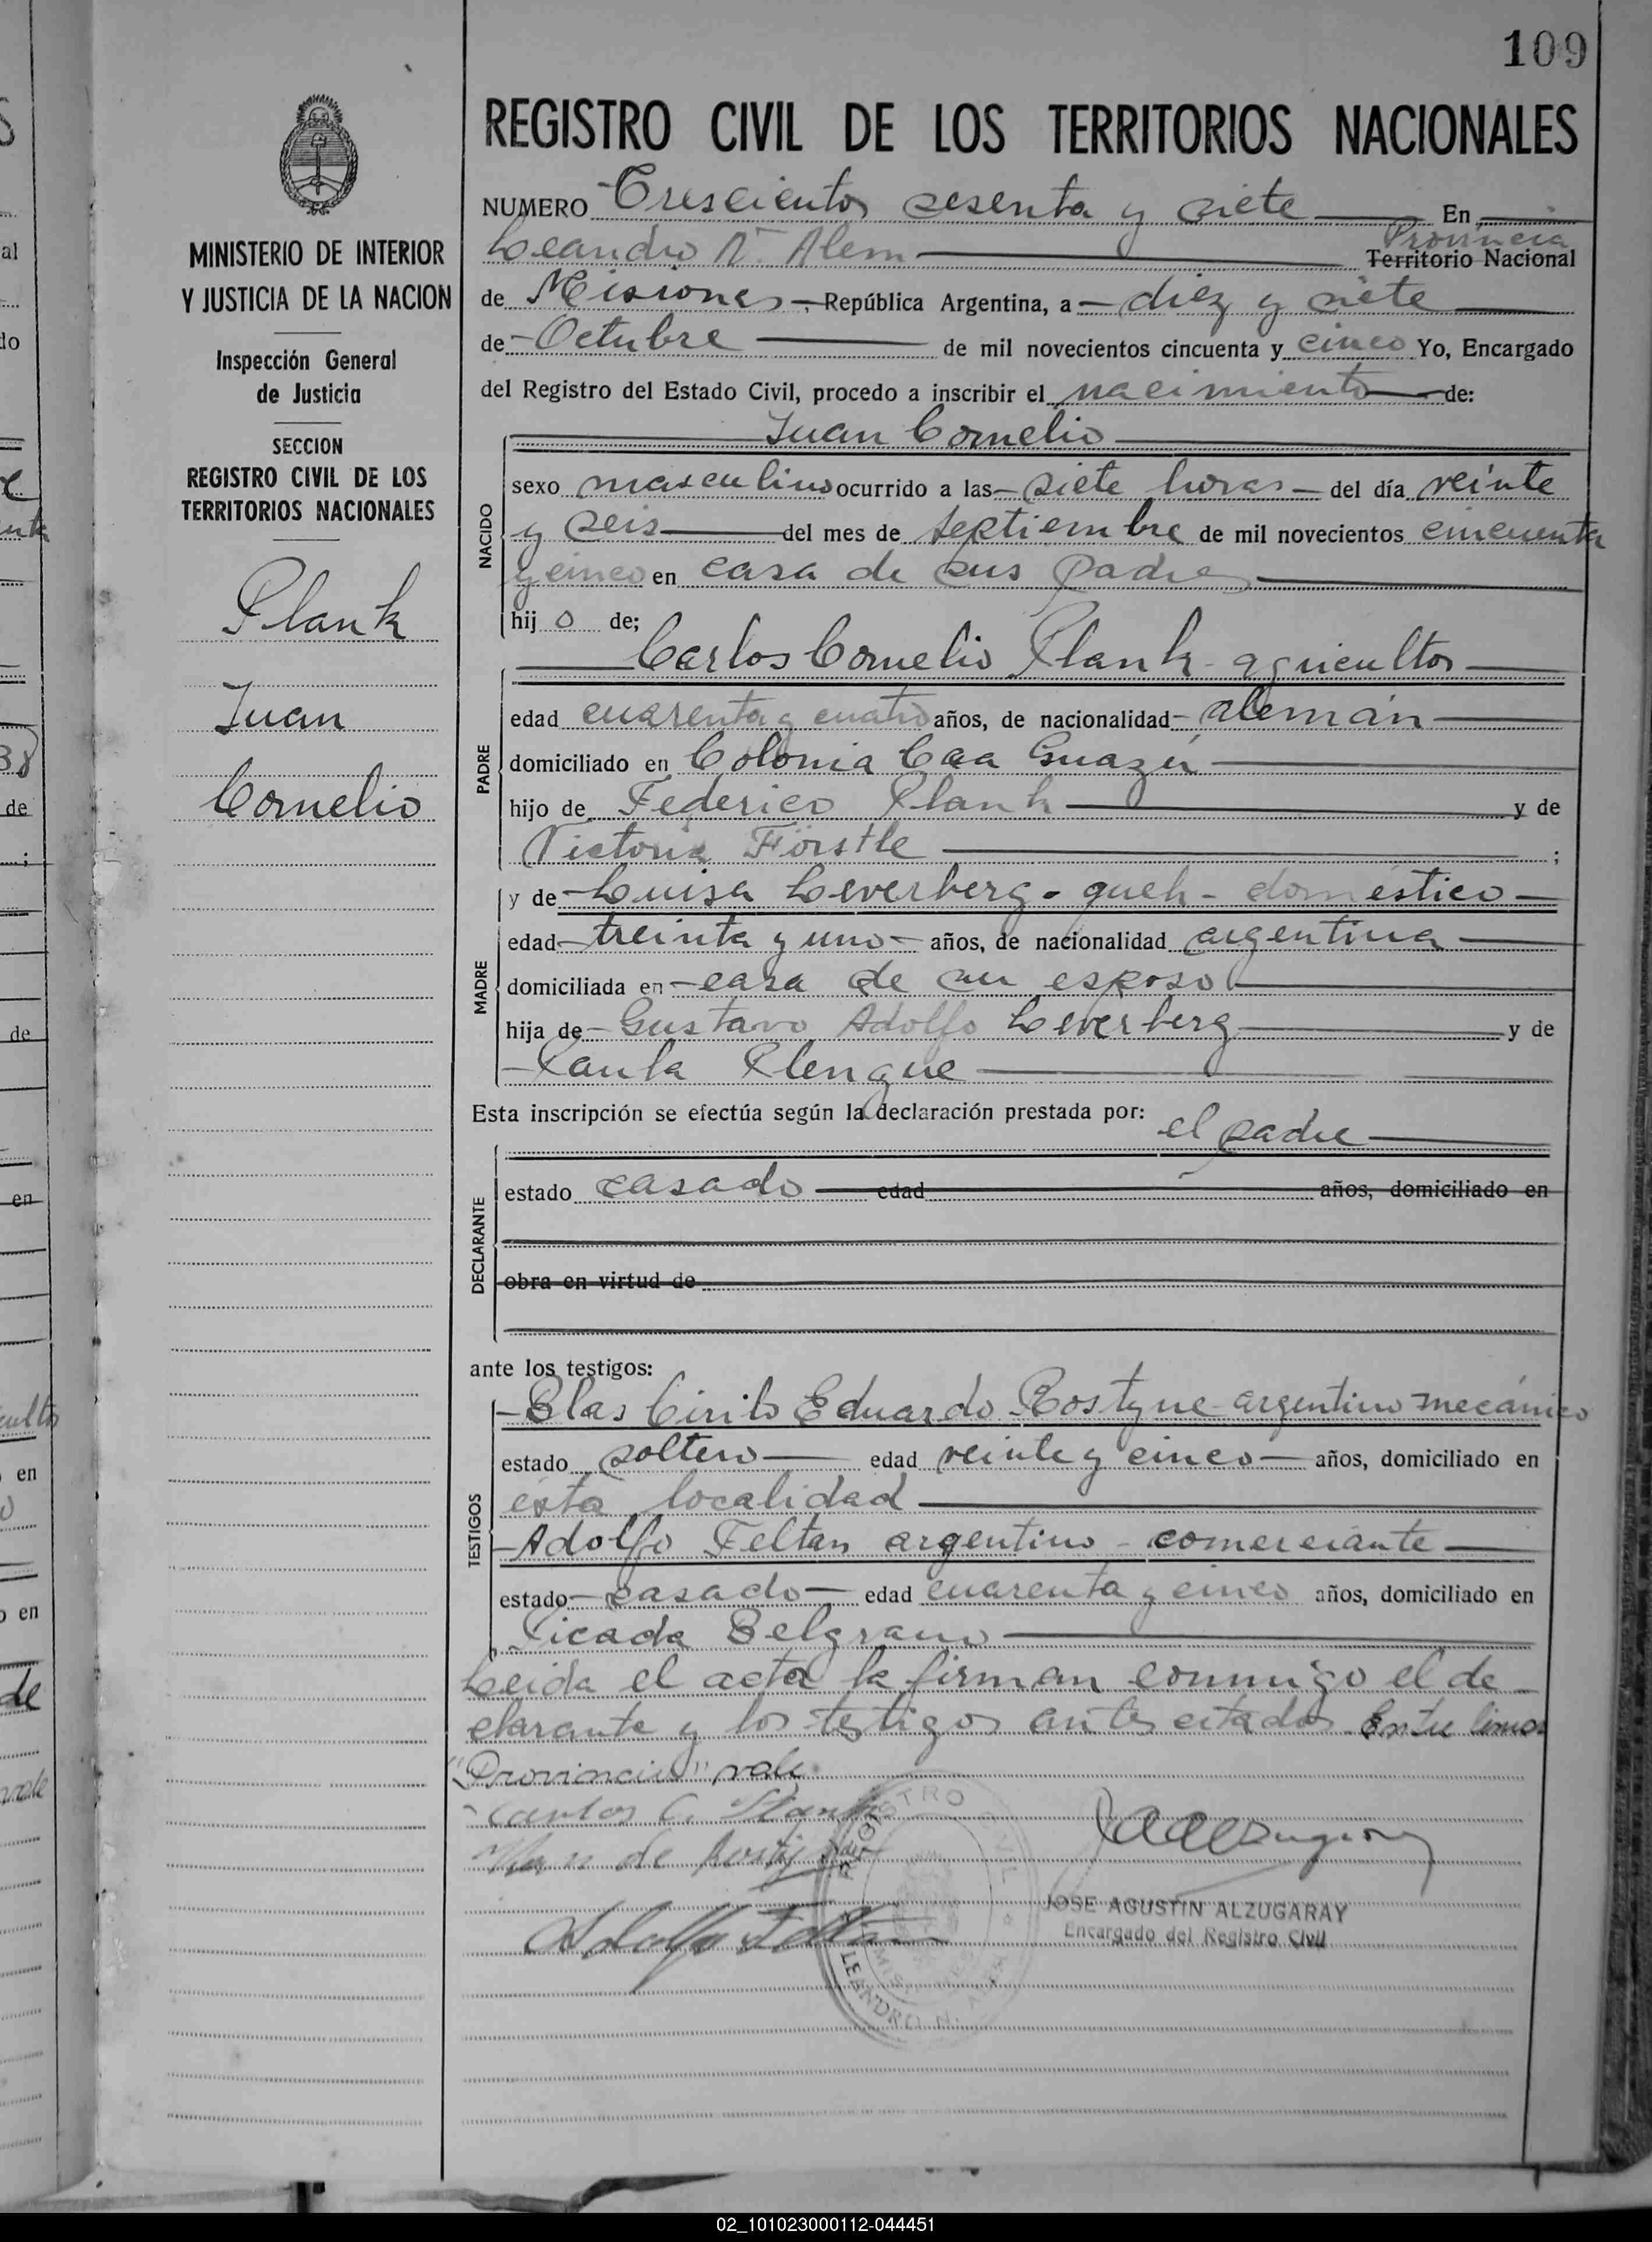 109
REGISTRO CIVIL DE LOS TERRITORIOS NACIONALES
MINISTERIO DE INTERIOR
Y JUSTICIA DE LA NACION
Inspección General
de Justicia
SECCION
REGISTRO CIVIL DE LOS
TERRITORIOS NACIONALES
Plank
Juan
Cornelio
NUMERO Trescientos sesenta y siete En
Leandro N. Alem Provincia Territorio Nacional
de Misiones República Argentina, a diez y siete
de Octubre de mil novecientos cincuenta y cinco Yo, Encargado
del Registro del Estado Civil, procedo a inscribir el nacimiento de:
Juan Cornelio
NACIDO
sexo masculino ocurrido a las siete horas del día veinte
y seis del mes de septiembre de mil novecientos cincuenta
y cinco en casa de sus padres
hij o de;
Carlos Cornelio Plank - agricultor
PADRE
edad cuarenta y cuatro años, de nacionalidad alemán
domiciliado en Colonia Caa Guazú
hijo de Federico Plank y de
Victoria Förstle ;
y de Luisa Leverberg - queh - doméstico
MADRE
edad treinta y uno años, de nacionalidad argentina
domiciliada en casa de su esposo
hija de Gustavo Adolfo Leverberg y de
Paula Plengue
Esta inscripción se efectúa según la declaración prestada por: el padre
DECLARANTE
estado casado edad años, domiciliado en
obra en virtud de
ante los testigos:
TESTIGOS
Blas Cirilo Eduardo Rostyne argentino mecánico
estado soltero edad veinte y cinco años, domiciliado en
esta localidad
Adolfo Feltan argentino - comerciante
estado casado edad cuarenta y cinco años, domiciliado en
Picada Belgrano
Leida el acta la firman conmigo el de
clarante y los testigos antes citados Entre lineas
"Provincia" vale
Carlos C. Plank
Adolfo Feltan
REGISTRO CIVIL
LEANDRO N. ALEM
JOSE AGUSTIN ALZUGARAY
Encargado del Registro Civil
02_101023000112-044451